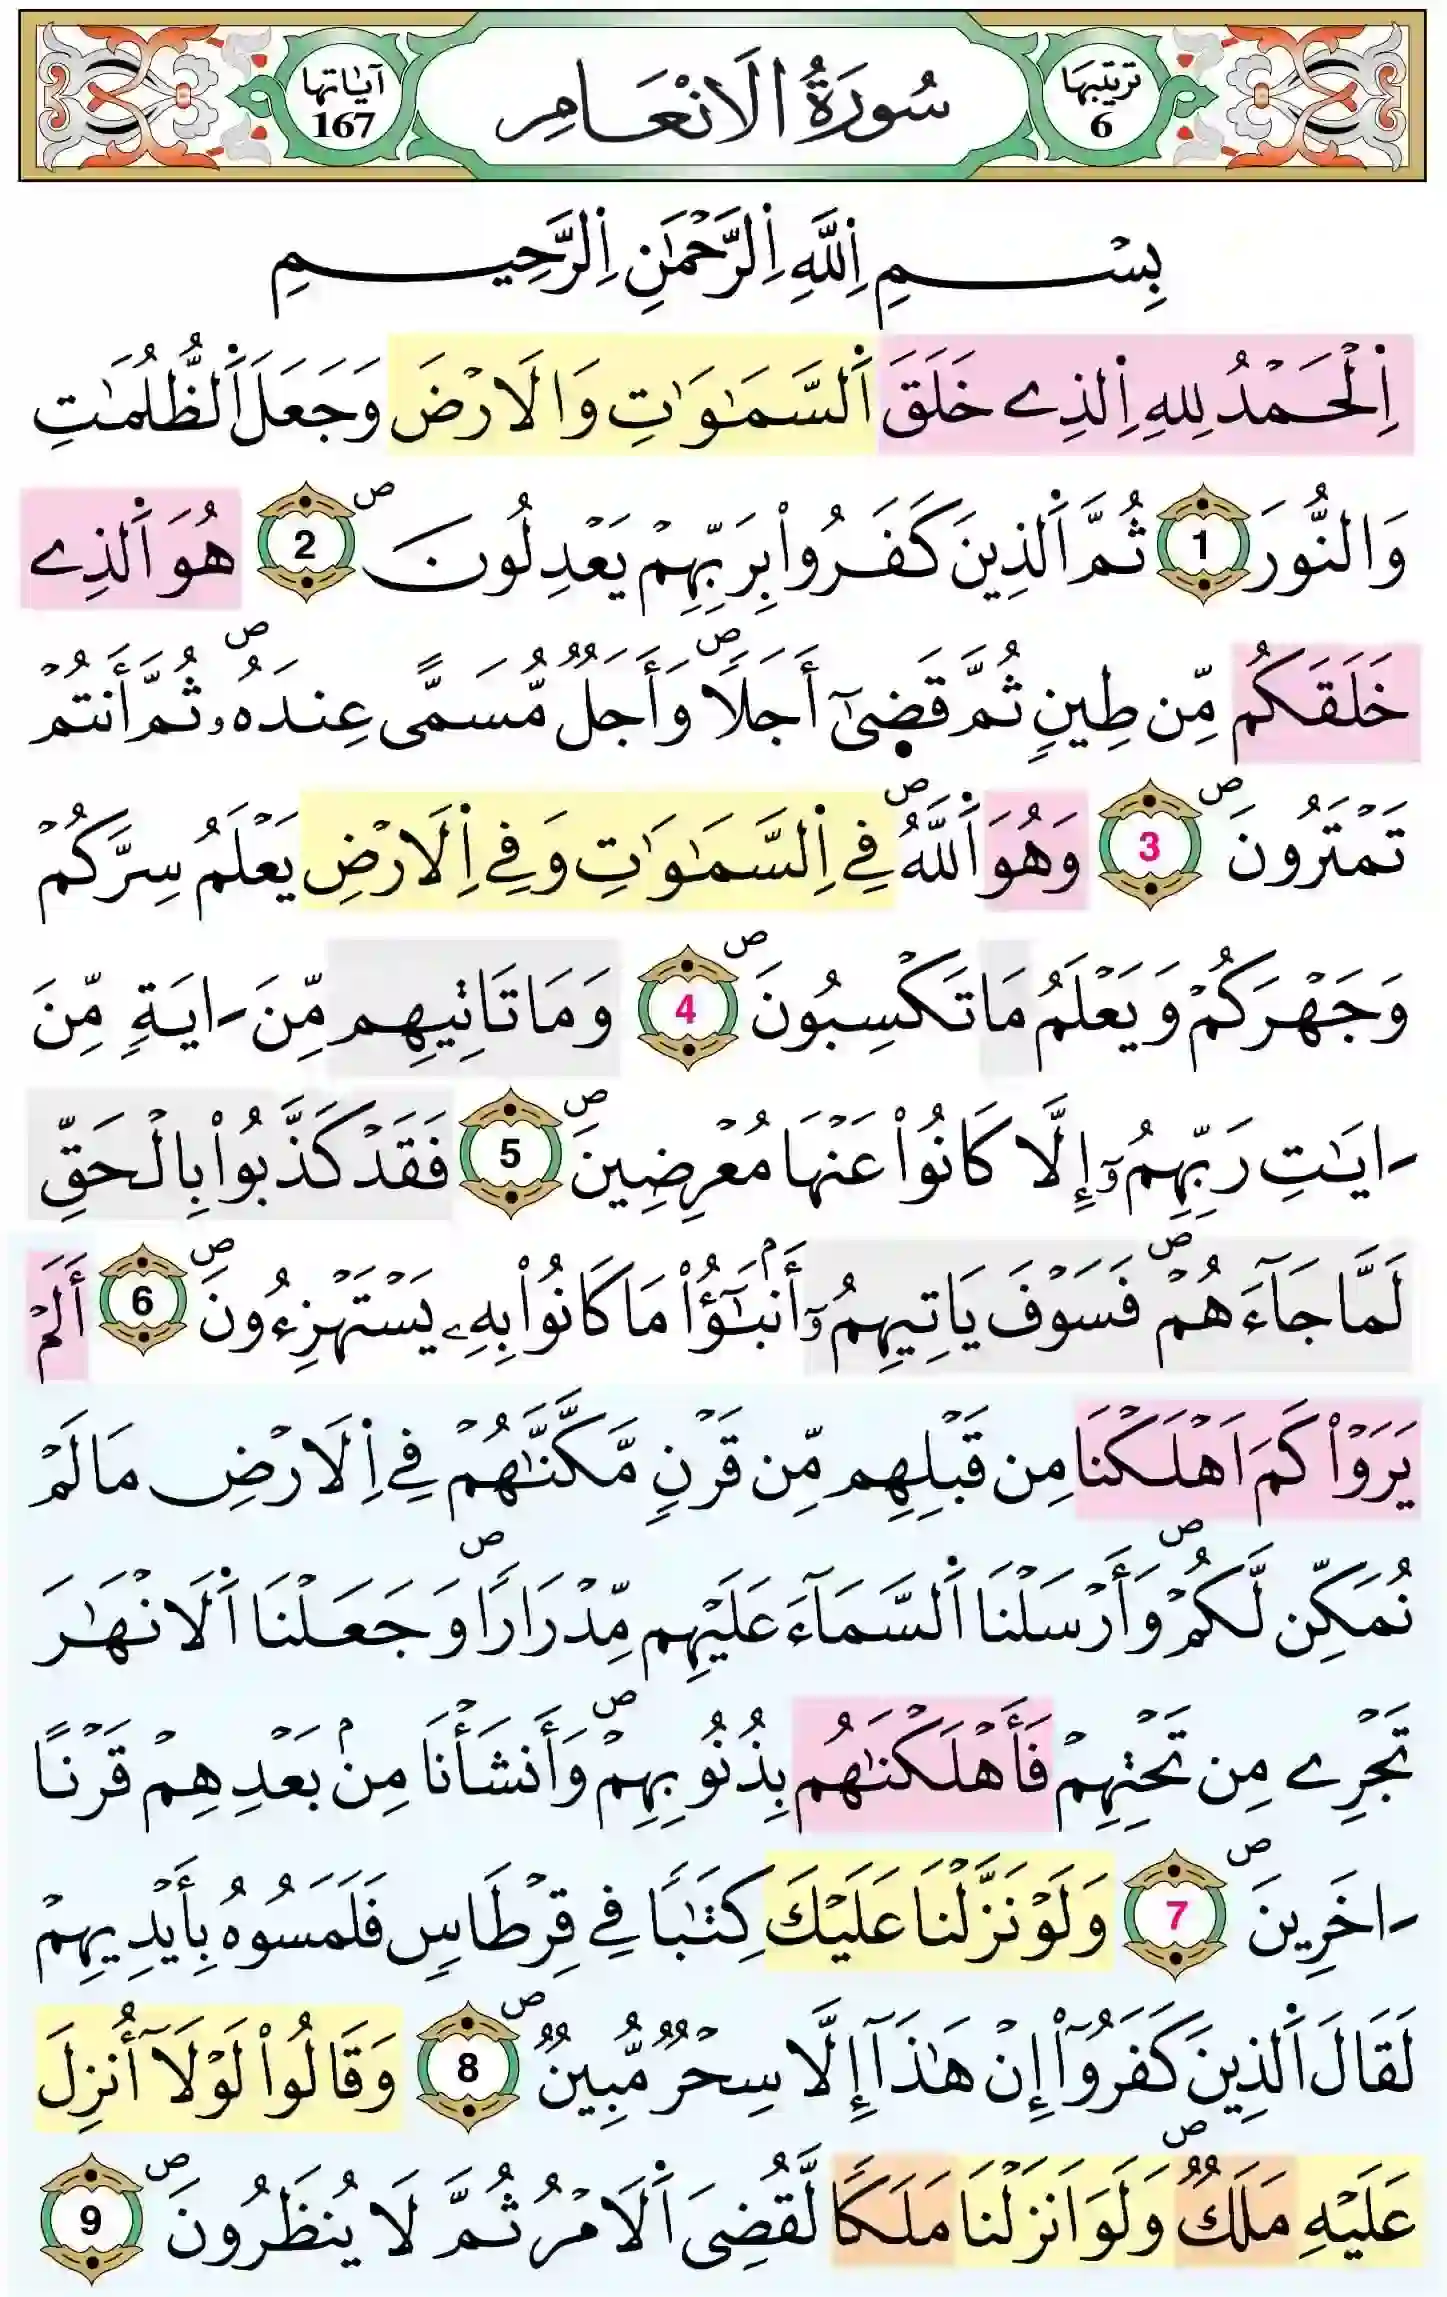 ترتيبها 6
سُورَةُ الَانْعَامِ
آيَاتها 167
بِسْمِ اِ۬للَّهِ اِ۬لرَّحْمَٰنِ اِ۬لرَّحِيمِ
اِ۬لْحَمْدُ لِلهِ اِ۬لذِے خَلَقَ اَ۬لسَّمَٰوَٰتِ وَالَارْضَ وَجَعَلَ اَ۬لظُّلُمَٰتِ
وَالنُّورَ 1 ثُمَّ اَ۬لذِينَ كَفَرُواْ بِرَبِّهِمْ يَعْدِلُونَۖ 2 هُوَ اَ۬لذِے
خَلَقَكُم مِّن طِينٖ ثُمَّ قَض۪ىٰٓ أَجَلاٗۖ وَأَجَلٞ مُّسَمًّى عِندَهُۥۖ ثُمَّ أَنتُمْ
تَمْتَرُونَۖ 3 وَهُوَ اَ۬للَّهُۖ فِے اِ۬لسَّمَٰوَٰتِ وَفِے اِ۬لَارْضِ يَعْلَمُ سِرَّكُمْ
وَجَهْرَكُمْ وَيَعْلَمُ مَا تَكْسِبُونَۖ 4 وَمَا تَاتِيهِم مِّنَ ـايَةٖ مِّنَ
ـايَٰتِ رَبِّهِمُۥٓ إِلَّا كَانُواْ عَنْهَا مُعْرِضِينَۖ 5 فَقَدْ كَذَّبُواْ بِالْحَقِّ
لَمَّا جَآءَهُمْۖ فَسَوْفَ يَاتِيهِمُۥٓ أَنۢبَٰٓؤُاْ مَا كَانُواْ بِهِۦ يَسْتَهْزِءُونَۖ 6 أَلَمْ
يَرَوْاْ كَمَ اَهْلَكْنَا مِن قَبْلِهِم مِّن قَرْنٖ مَّكَّنَّٰهُمْ فِے اِ۬لَارْضِ مَا لَمْ
نُمَكِّن لَّكُمْۖ وَأَرْسَلْنَا اَ۬لسَّمَآءَ عَلَيْهِم مِّدْرَاراٗۖ وَجَعَلْنَا اَ۬لَانْهَٰرَ
تَجْرِے مِن تَحْتِهِمْ فَأَهْلَكْنَٰهُم بِذُنُوبِهِمْۖ وَأَنشَأْنَا مِنۢ بَعْدِهِمْ قَرْناً
ـاخَرِينَۖ 7 وَلَوْ نَزَّلْنَا عَلَيْكَ كِتَٰباٗ فِے قِرْطَاسٖ فَلَمَسُوهُ بِأَيْدِيهِمْ
لَقَالَ اَ۬لذِينَ كَفَرُوٓاْ إِنْ هَٰذَآ إِلَّا سِحْرٞ مُّبِينٞۖ 8 وَقَالُواْ لَوْلَآ أُنزِلَ
عَلَيْهِ مَلَكٞۖ وَلَوَ اَنزَلْنَا مَلَكاٗ لَّقُضِىَ اَ۬لَامْرُ ثُمَّ لَا يُنظَرُونَۖ 9